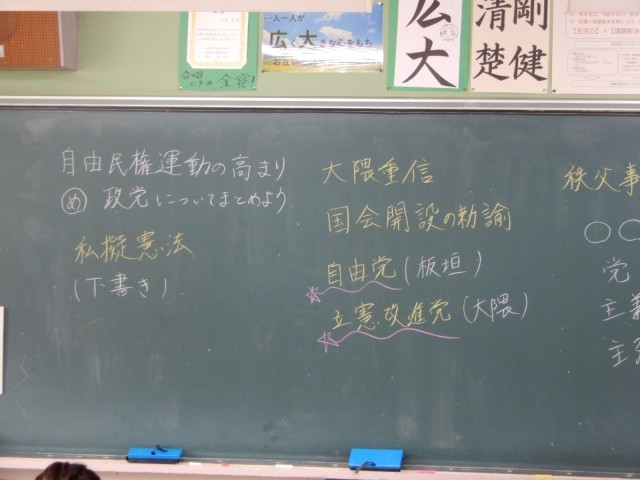 一人一人が
広く大きな心をもち
広大
清楚
剛健
自由民権運動の高まり
め 政党についてまとめよう
私擬憲法
(下書き)
大隈重信
国会開設の勅諭
自由党(板垣)
立憲改進党(大隈)
秩父事
〇〇
党
主義
主張